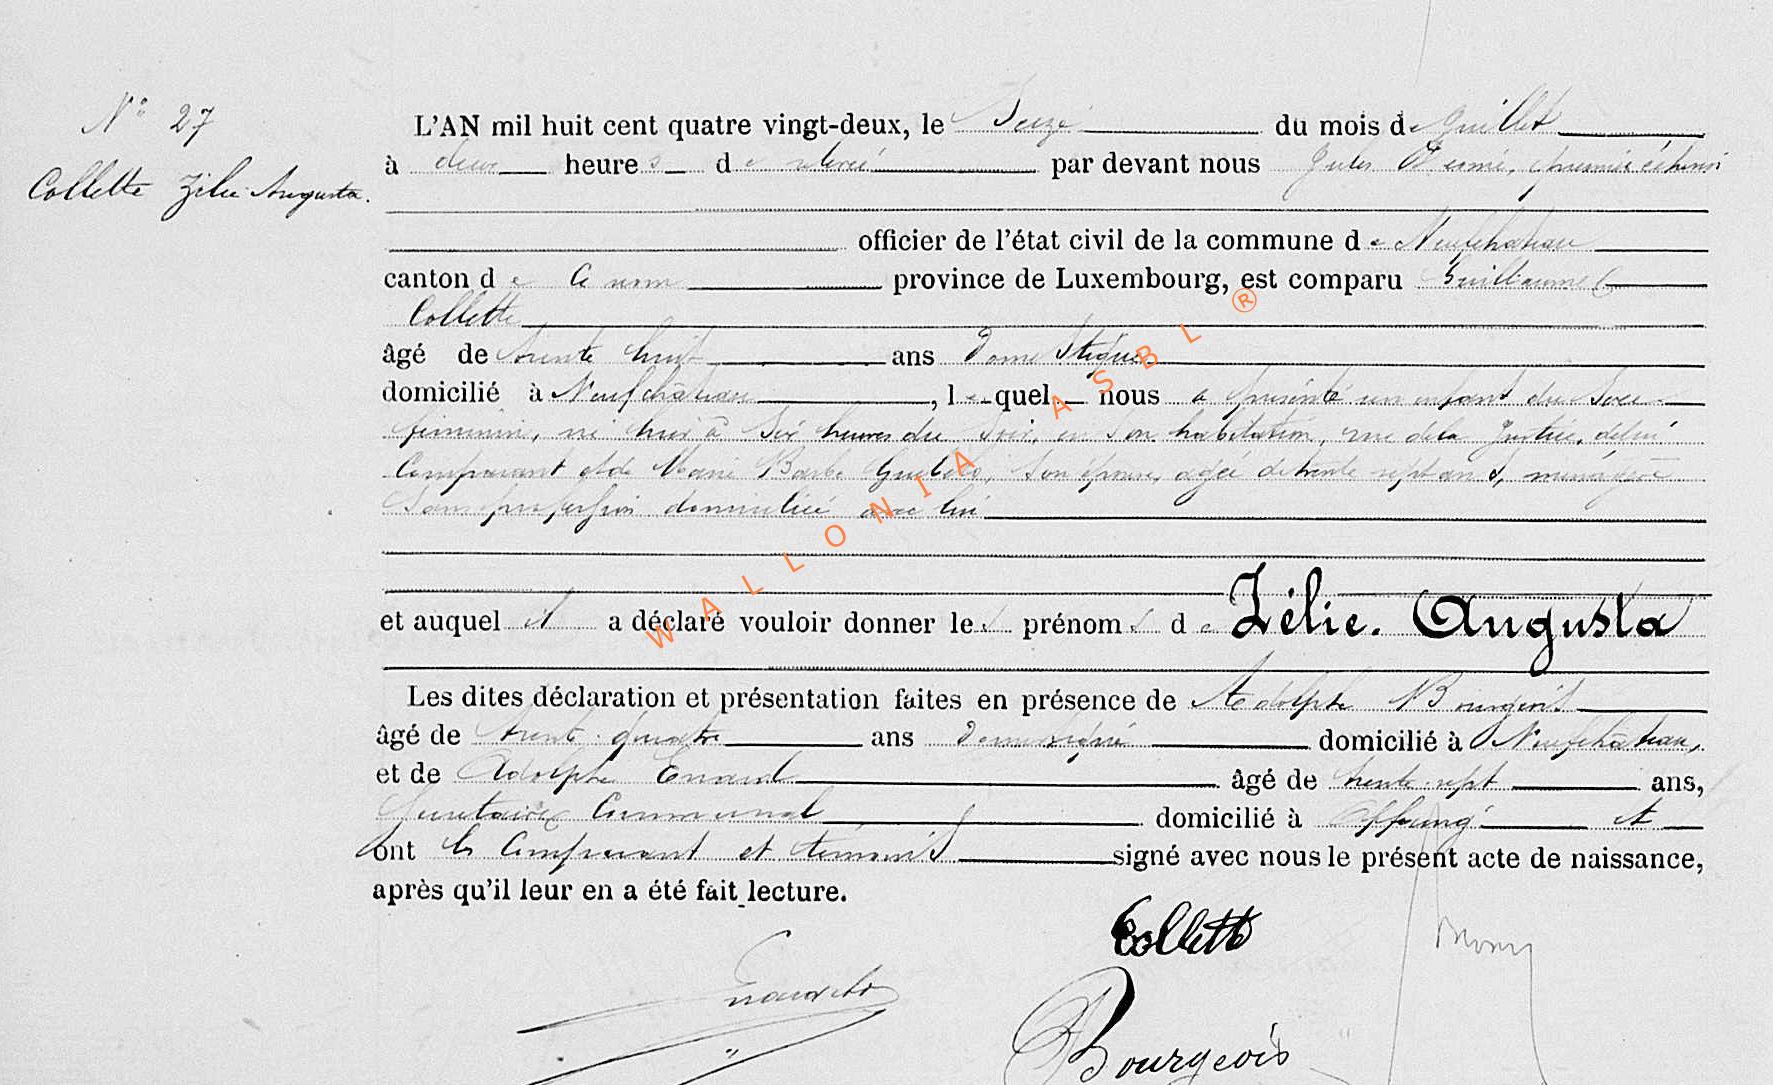 N° 27
Collette Zélie Augusta.
L'AN mil huit cent quatre vingt-deux, le Seize du mois de Juillet
à deux heures de relevée par devant nous Jules premier échevin
officier de l'état civil de la commune de Neufchâteau
canton de ce nom province de Luxembourg, est comparu Guillaume
Collette
âgé de trente huit ans Domestique
domicilié à Neufchâteau, lequel nous a présenté un enfant du Sexe
féminin, né hier à Six heures du Soir, en Son habitation, rue de la Justice, de lui
Comparant et de Marie Barbe Son épouse, agée de trente sept ans, ménagère
Sans profession domiciliée avec lui
et auquel il a déclaré vouloir donner les prénoms de Zélie. Augusta
Les dites déclaration et présentation faites en présence de Adolphe Bourgeois
âgé de trente quatre ans Domestique domicilié à Neufchâteau,
et de Adolphe Evrard âgé de trente sept ans,
Secrétaire Communal domicilié à Offaing et
ont les Comparant et témoins signé avec nous le présent acte de naissance,
après qu'il leur en a été fait lecture.
Collette
Bourgeois
WALLONIA ASBL ®